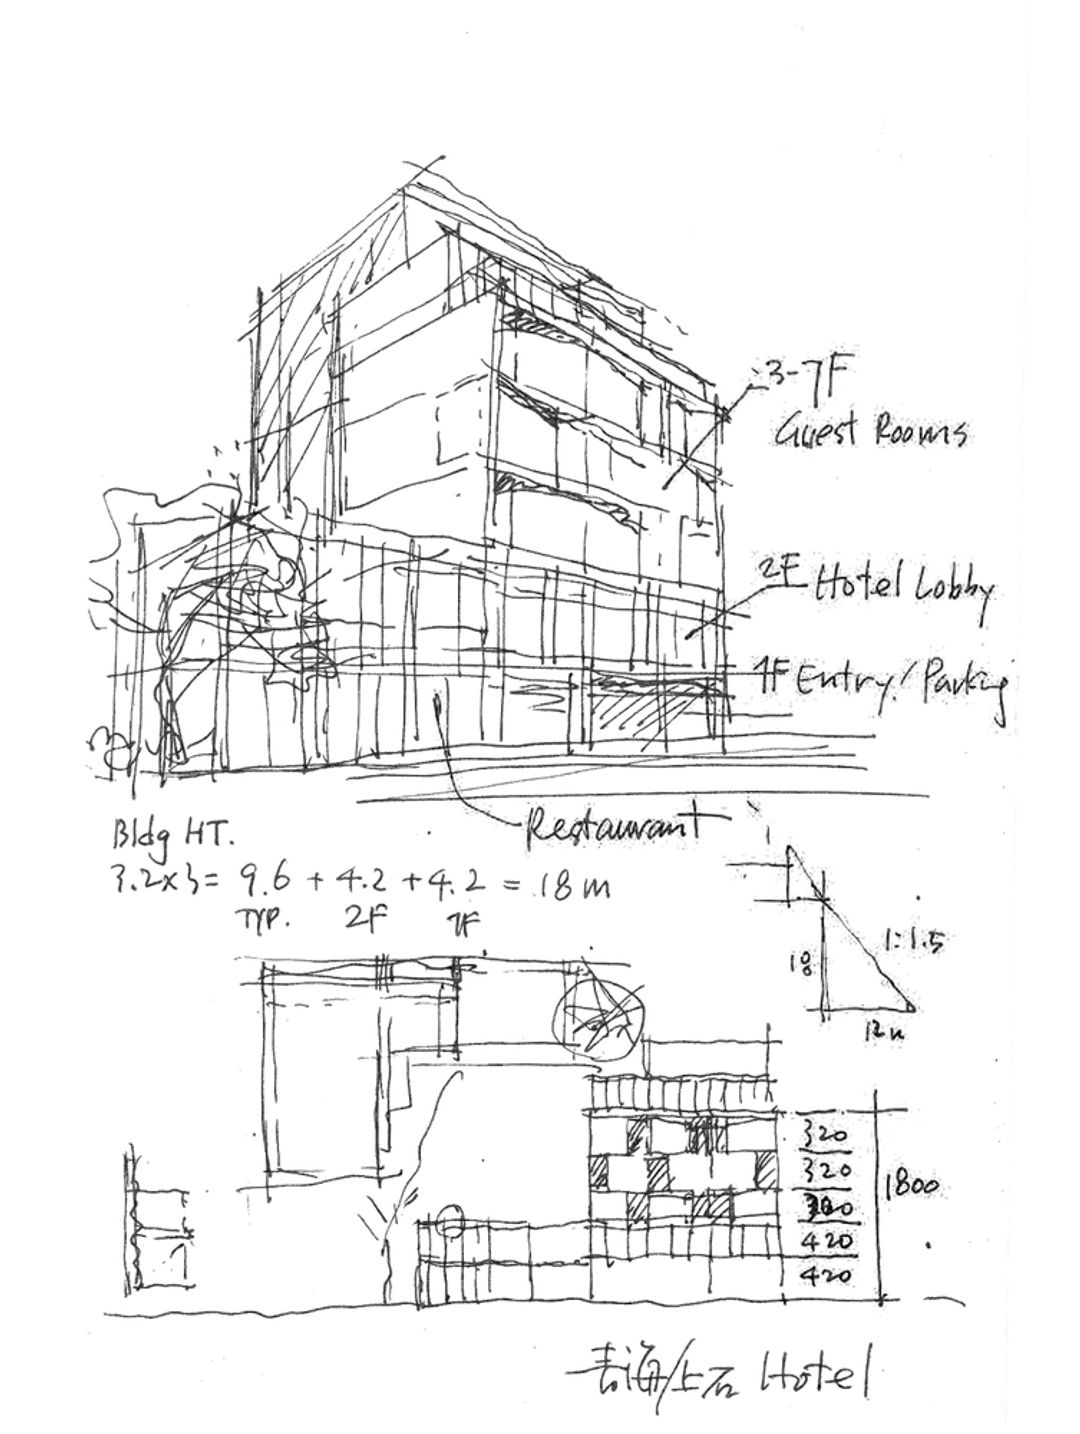 3-7F
Guest Rooms
2F Hotel Lobby
1F Entry/Parking
Restaurant
Bldg HT.
3.2x3= 9.6 + 4.2 + 4.2 = 18m
TYP. 2F 1F
1
1:1.5
18
12
320
320
320
420
420
1800
青海/上石 Hotel